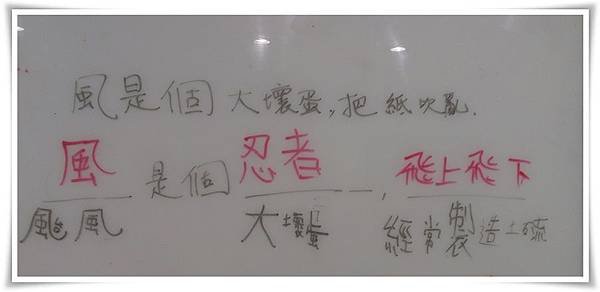 風是個大壞蛋,把紙吹亂.
風是個忍者,飛上飛下
颱風 大壞蛋 經常製造土石流